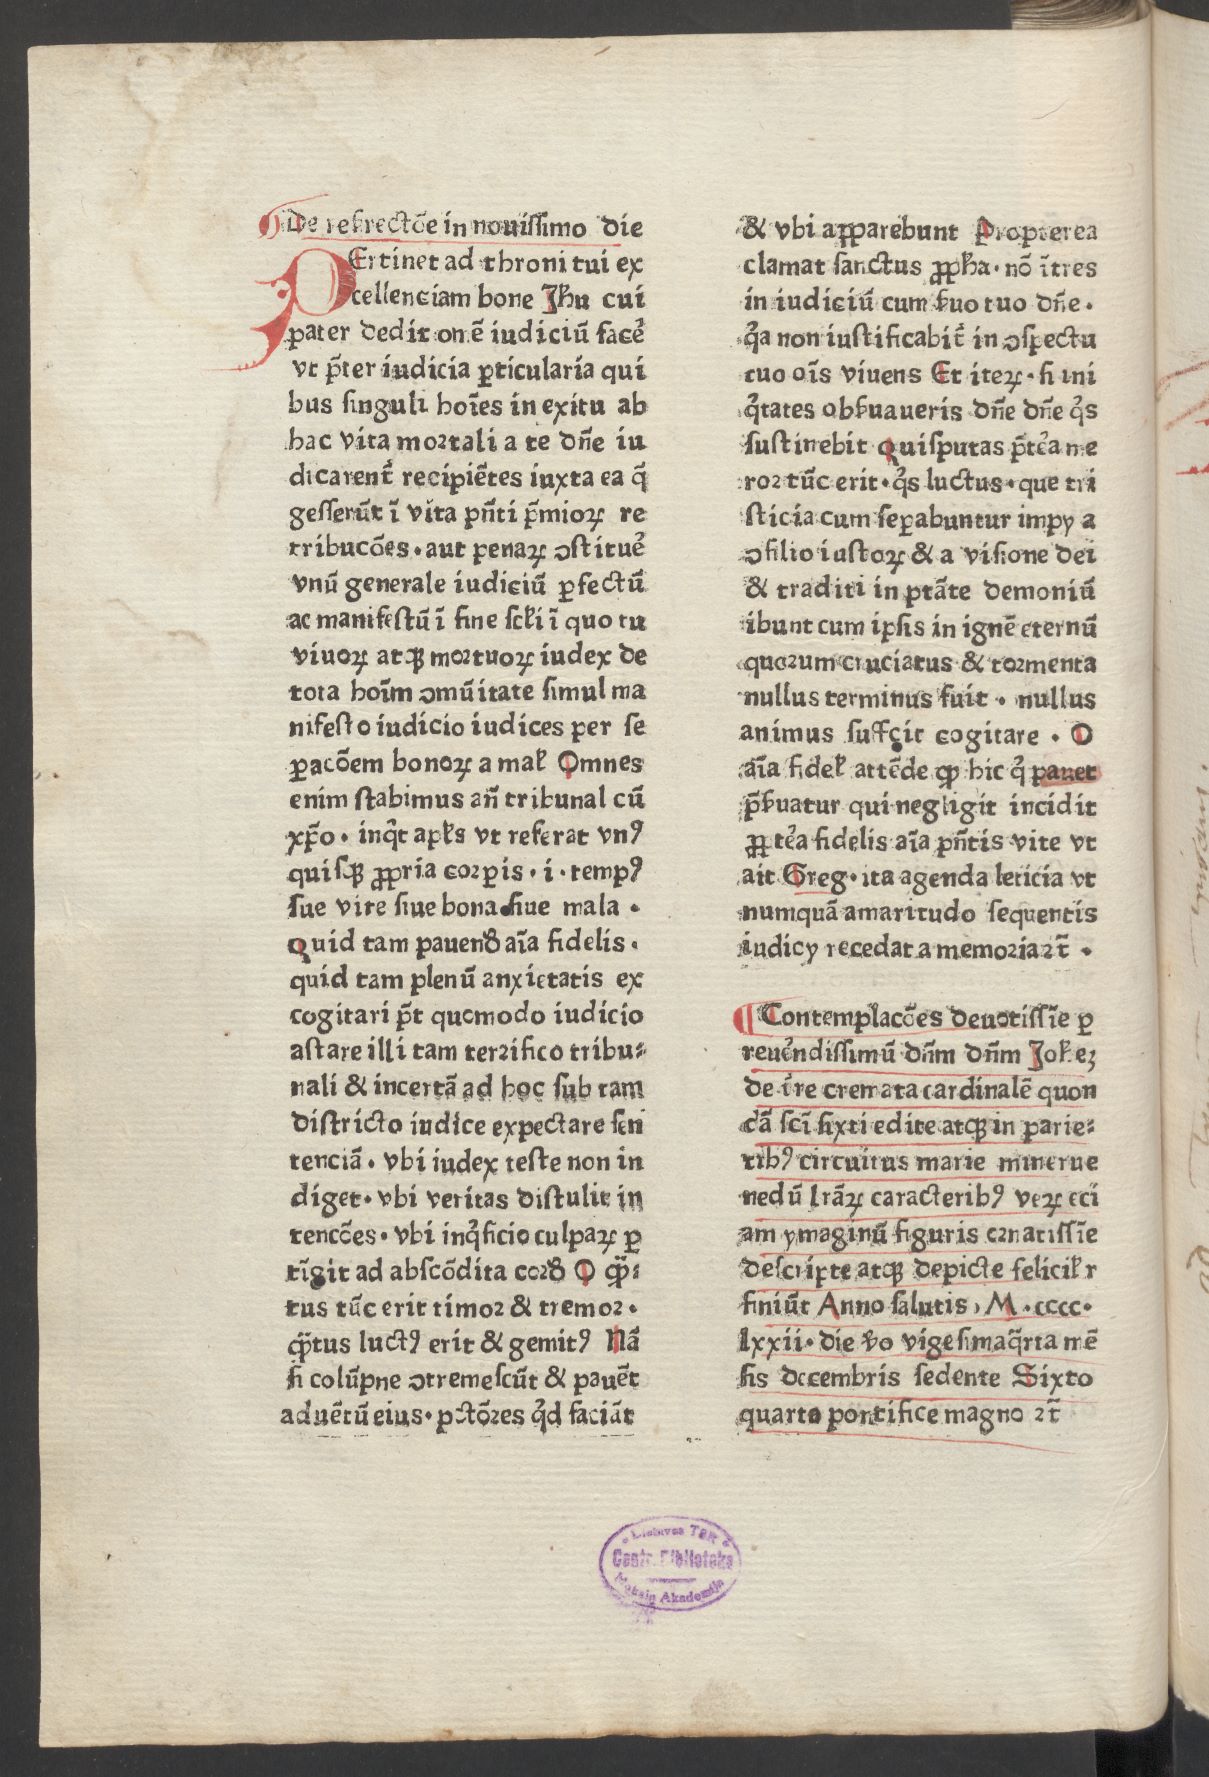 De resrectōe in nouissimo die
PErtinet ad throni tui ex
cellenciam bone Jhu cui
pater dedit om̄e iudiciū facẻ
vt p̄ter iudicia ꝑticularia qui
bus singuli hoīes in exitu ab
hac vita mortali a te dn̄e iu
dicarent᷑ recipiētes iuxta ea q̄
gesserūt ī vita pn̄ti p̄mioꝝ re
tribucōes · aut penaꝝ ↄstituẻ
vnū generale iudiciū ꝑfectū
ac manifestū ī fine scƚi ī quo tu
viuoꝝ atqꝫ mortuoꝝ iudex de
tota hoīm ↄmūitate simul ma
nifesto iudicio iudices per se
ꝑacōem bonoꝝ a maƚ Omnes
enim stabimus an̄ tribunal cū
xp̄o · inqͥt apƚs vt referat vnꝰ
quisqꝫ ꝓpria corꝑis · i · tempꝰ
sue vite siue bona siue mala ·
Quid tam pauendꝰ aīa fidelis ·
quid tam plenū anxietatis ex
cogitari p̄t quomodo iudicio
astare illi tam terrifico tribu⸗
nali & incertā ad hoc sub tam
districto iudice expectare sen
tenciā · vbi iudex teste non in
diget · vbi veritas distulit in
tencōes · vbi inqͥficio culpaꝝ ꝑ
tīgit ad abscōdita cordꝭ O qͣ̄⸗
tus tūc erit timor & tremor ·
qͣ̄tus luctꝰ erit & gemitꝰ Nā
si colūpne ↄtremescūt & pauēt
aduētū eius · pctōres qͥd faciāt
& vbi apparebunt Propterea
clamat sanctus ꝓpħa · nō ītres
in iudiciū cum ẜuo tuo dn̄e ·
qͥa non iustificabit᷑ in ↄspectu
tuo oīs viuens Et iteꝝ · si ini
qͥtates obẜuaueris dn̄e dn̄e qͥs
sustinebit Quisputas p̄tẻa me
ror tūc erit · qͥs luctus · que tri
sticia cum seꝑabuntur impy a
ↄsilio iustoꝝ & a visione dei
& traditi in ptāte demoniū
ibunt cum ipsis in ignē eternū
quorum cruciatus & tormenta
nullus terminus fuit · nullus
animus sufficit cogitare · O
aīa fideƚ attēde qꝫ hic qͥ pauet
p̄ẜuatur qui negligit incidit
ꝓptẻa fidelis aīa pn̄tis vite vt
ait Greg · ita agenda leticia vt
numquā amaritudo sequentis
iudicy recedat a memoria ꝛc̄ ·
Contemplacōes deuotissīe ꝑ
reuẻndissimū dn̄m dn̄m Joħeꝫ
de tr̄re cremata cardinalē quon
dā scī sixti edite atqꝫ in parie⸗
tibꝰ circuitus marie minerue
nedū lrāꝝ caracteribꝰ veꝝ eci
am ymaginū figuris ornatissīe
descripte atqꝫ depicte feliciƚr
finiūt Anno salutis · M · cccc ·
lxxii · die v̊o vigesimaqͣrta mē
sis decembris sedente Sixto
quarto pontifice magno ꝛc̄
Lietuvos TSR
Centr. Biblioteka
Mokslų Akademija